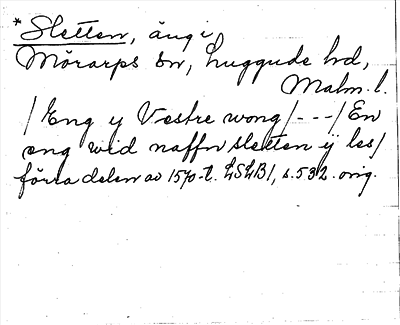 *Sletten, äng i
Mörarps sn, Luggude hd,
Malm. l.
/Eng y Vestre wong/---/En
eng wid naffn sletten ÿ les/
förra delen av 1570-t. LSLB1, s. 532. orig.